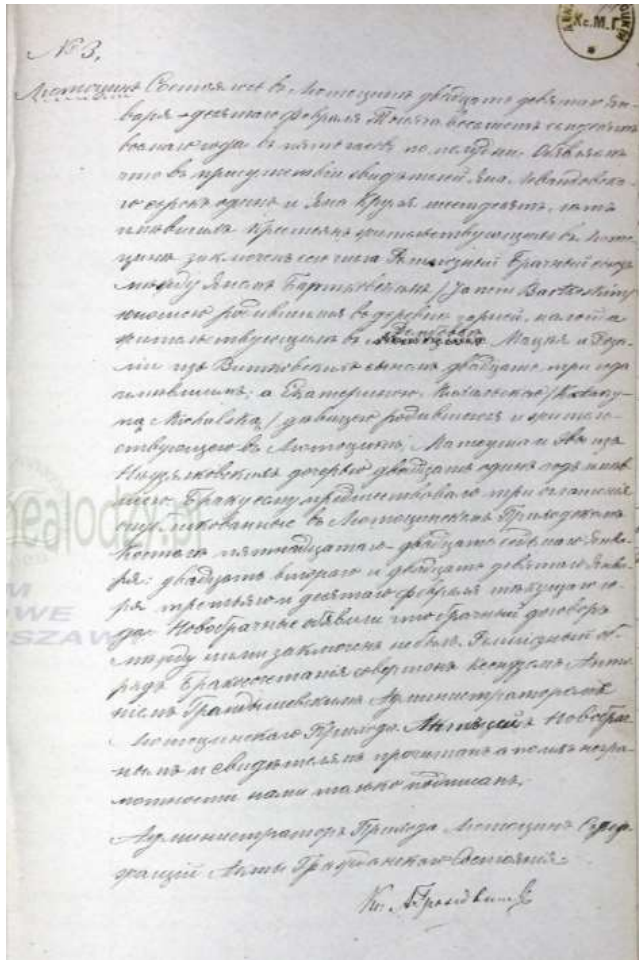 № 3.
Лютоцинъ Состоялось въ Лютоцинѣ двадцать девятаго Ян-
варя - десятаго Февраля Тысяча восемьсотъ семьдесятъ
восьмаго года въ пять часовъ по полудни. Объявляемъ
что въ присутствіи свидѣтелей Яна Левандовска-
го сорокъ одинъ и Яна шестьдесятъ лѣтъ
имѣвшихъ крестьянъ жительствующихъ въ Люто-
цинѣ заключенъ сего числа Религіозный брачный союзъ
между Яномъ Бартковскимъ /Janem Bartkoskim/
юношею родившимся въ деревнѣ
жительствующимъ въ Мацѣя и Роза-
ліи изъ Витковскихъ сыномъ двадцать три года
имѣвшимъ; а Екатериною Михальскою /Katarzy-
ną Michalską/ дѣвицею родившеюся и житель-
ствующею въ Лютоцинѣ, Матеуша и Эвы изъ
дочерью двадцать одинъ годъ имѣв-
шею. Браку сему предшествовало три оглашенія
опубликованные въ Лютоцинскомъ Приходскомъ
Костелѣ пятнадцатаго - двадцать седьмаго Янва-
ря: двадцать втораго и двадцать девятаго Янва-
ря третьяго и десятаго февраля текущаго го-
да. Новобрачные объявили что брачный договоръ
между ними заключенъ не былъ. Религіозный об-
рядъ Бракосочетанія совершенъ Ксендзомъ Анто-
ніемъ Администраторомъ
Лютоцинскаго Прихода. Актъ сей Новобрач-
нымъ и свидѣтелямъ прочитанъ а по ихъ негра-
мотности нами только подписанъ.
Администраторъ Прихода Лютоцинъ Содер-
жащій Акты Гражданскаго Состоянія
Кс. А.